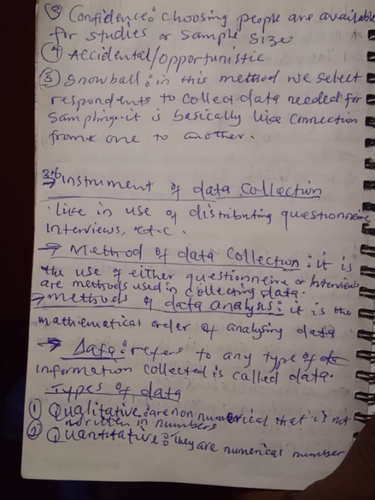 ③ Confidence: choosing people are available
for studies or sample size
④ Accidental/opportunistic
⑤ Snowball: in this method we select
respondents to collect data needed for
sampling. it is basically like connection
from one to another.
→ Instrument of data collection
like in use of distributing questionneire
Interviews, e.t.c.
→ Method of data collection: it is
the use of either questionneire or Interviews
are methods used in collecting data.
→ methods of data analysis: it is the
mathematical order of analysing data
→ Data: refers to any type of
information collected is called data.
Types of data
① Qualitative: are non numerical that is not
written in numbers
② Quantitative: They are numerical number